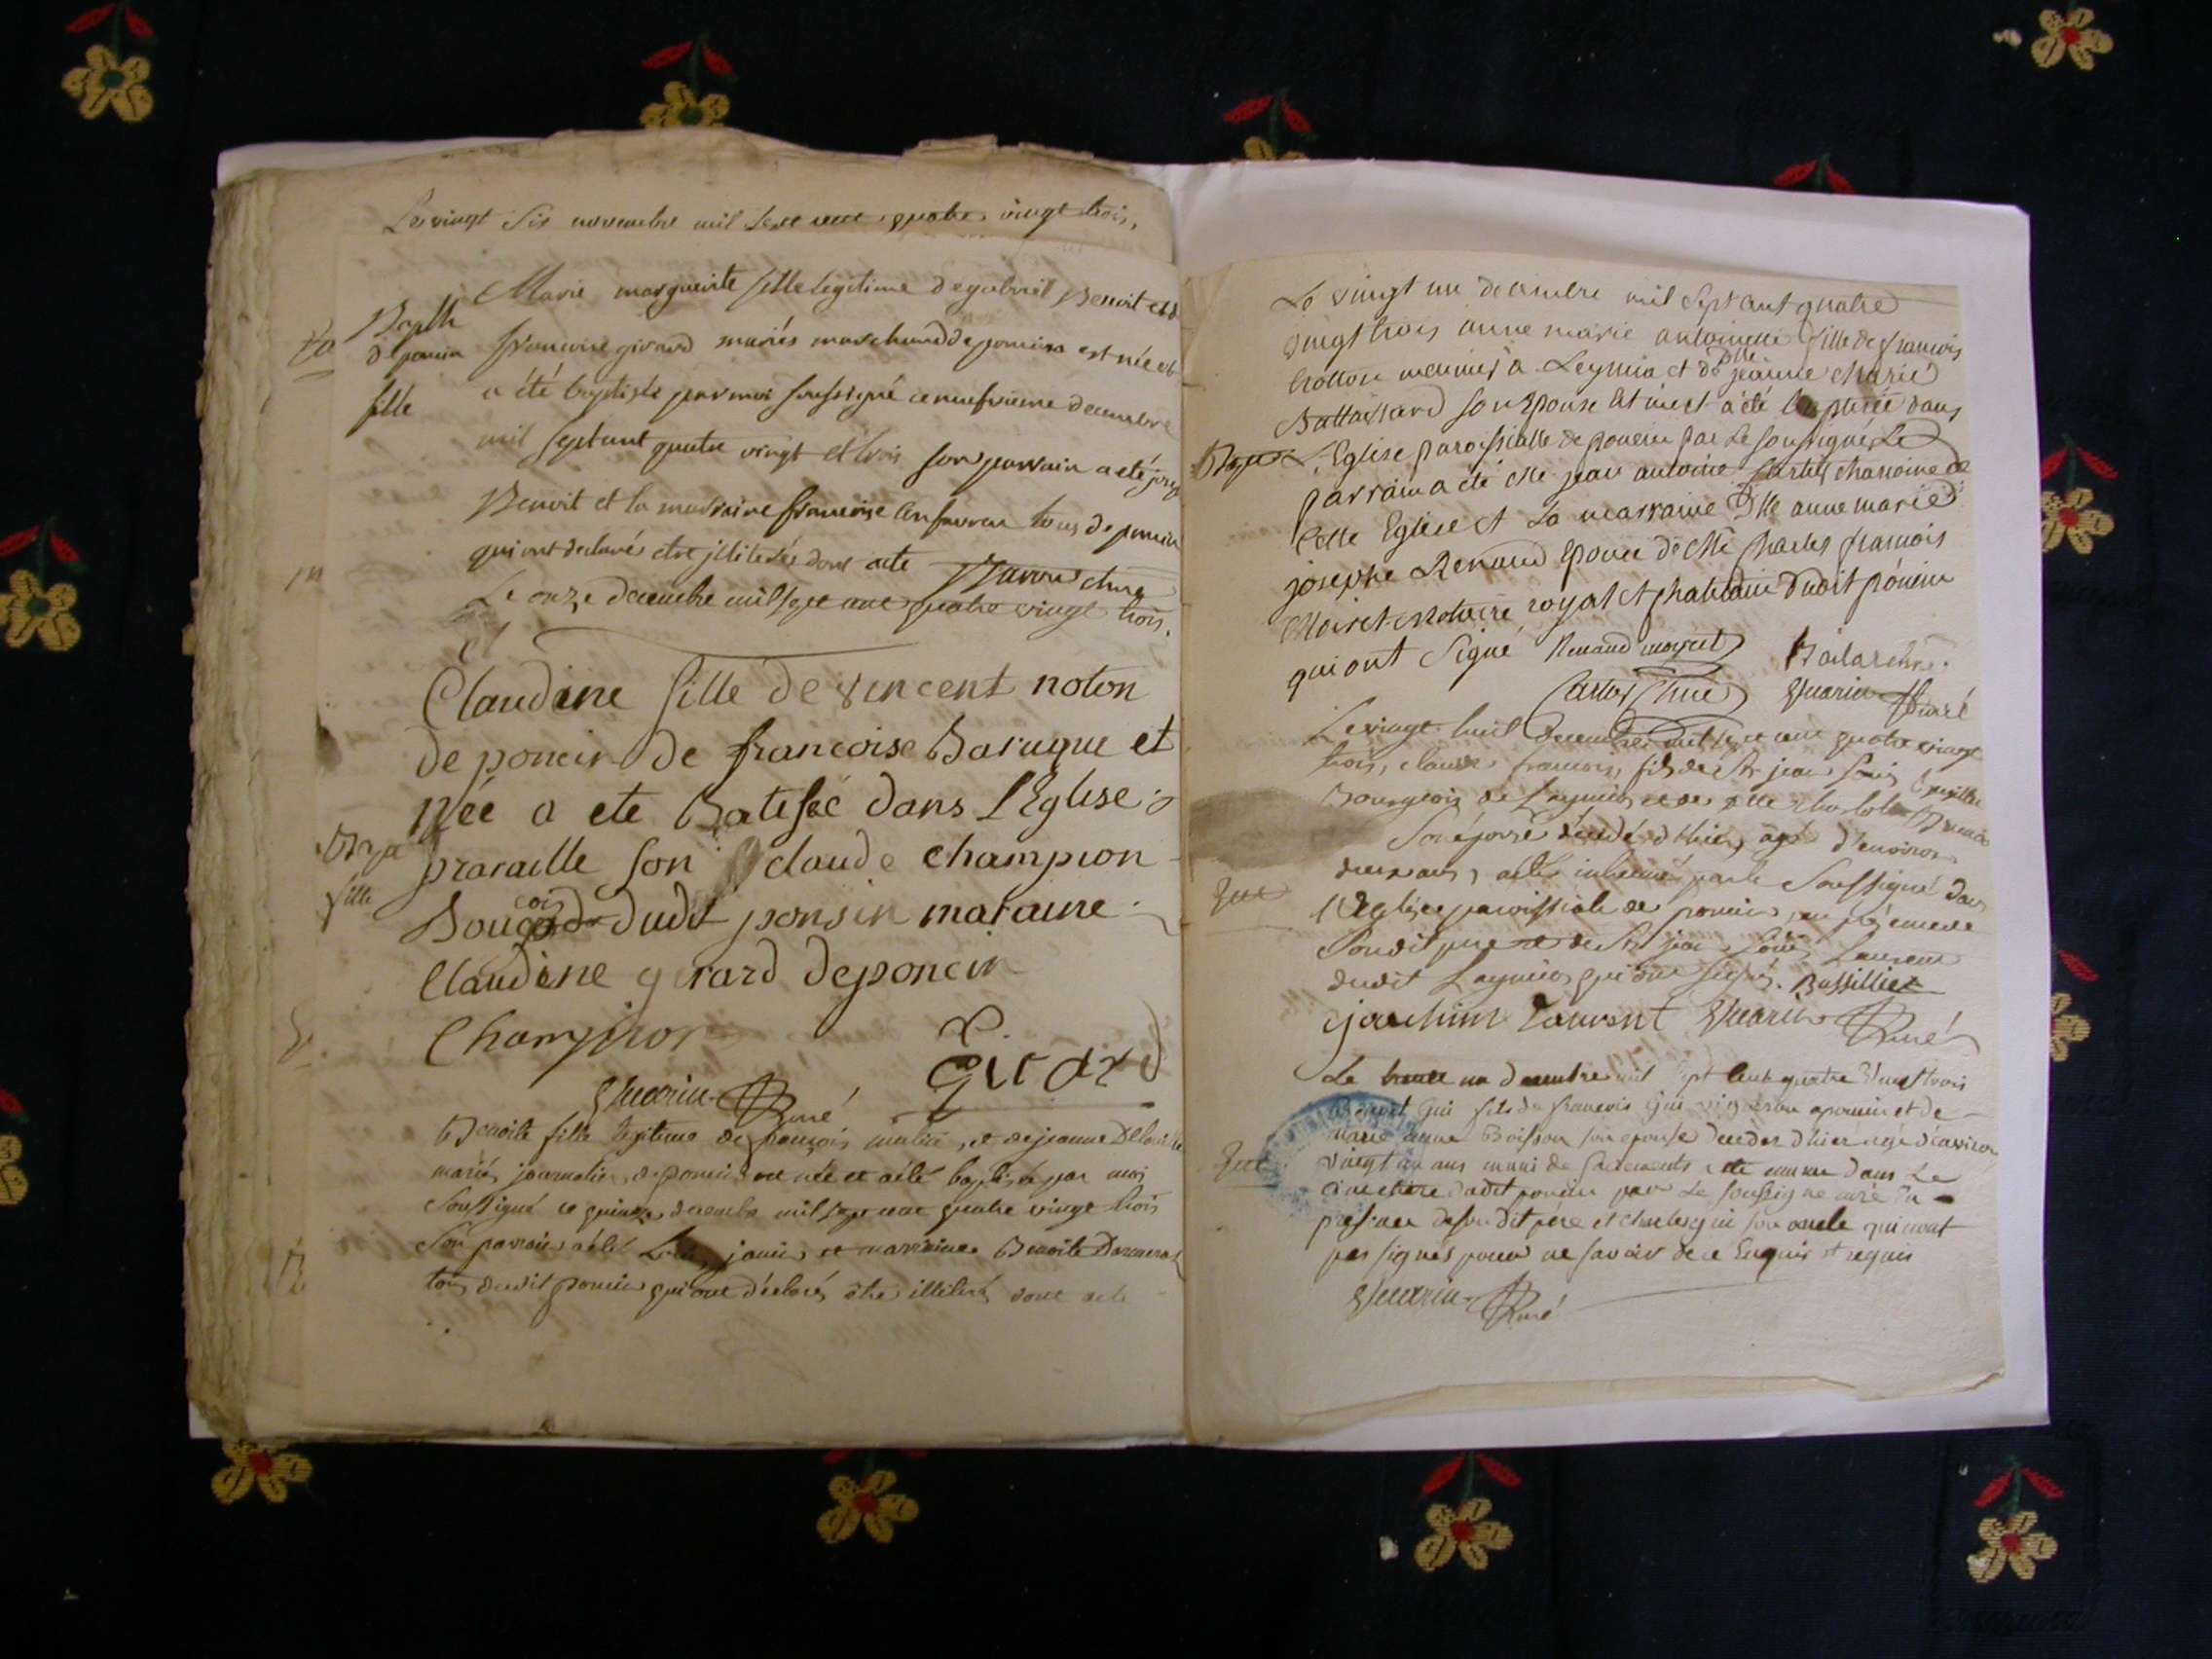 Le vingt six novembre mil sept cent quatre vingt trois,
Bapth
de poncin
fille
Marie marguerite fille legitime de gabriel Benoit et d
francoise girard mariés marchand de poncin est née et
a été baptisée par moi soussigné ce neufvieme decembre
mil sept cent quatre vingt et trois son parrain a été
Benoit et la marraine francoise tous de poncin
qui ont declarés etre illiterés dont acte
Le onze decembre mil sept cent quatre vingt trois.
Claudine fille de vincent noton
de poncin de francoise Baruque et
Née a ete Batesée dans l'Eglise
Bap
fille
praraille son claude champion
Bourgois dudit ponsin maraine
Claudine girard deponcin
Champion
Girard
Guerin Curé
Benoite fille legitime de françois et de jeanne
mariés journalier de poncin est née et a été baptisée par moi
soussigné ce quinze decembre mil sept cent quatre vingt trois
son parrain a été Louis janin et marraine Benoite
tous dudit poncin qui ont déclarés être illiterés dont acte
Le vingt un decembre mil sept cent quatre
vingt trois anne marie antoinette fille de francois
trotton meunier a Leymia et de dlle jeanne Marie
son Epouse Est née et a été baptisée dans
Bap
l'Eglise paroissialle de poncin par Le soussigné, Le
parrain a été Me jean antoine Cartet chanoine de
Cette Eglise et La marraine Dlle anne marie
josephe Renaud Epouse de Me Charles francois
Moiret Notaire royal et chatelain dudit poncin
qui ont Signé Renaud moyret
Cartet Chne Guerin Curé
Le vingt huit decembre mil sept cent quatre vingt
trois, claude francois, fils de Sr jean Louis
Bourgeois de Leymia et de dlle
son épouse décédé d'hier, agé d'environ
deux ans, a été inhumé par le soussigné dans
l'Eglise paroissiale de poncin, en présence de
sondit pere et de Sr Laurent
dudit Leymia qui ont signés. Bussillier
joachim Laurent Guerin Curé
Le trente un decembre mil sept cent quatre vingt trois
Benoit Gui fils de francois Gui vigneron a poncin et de
marie anne Boisson son epouse decedé d'hier agé d'environ
vingt un ans muni de sacrements a été inhumé dans Le
cimetiere dudit poncin par Le soussigne curé En
presence de sondit père et charles gui son oncle qui n'ont
pas signés pour ne savoir de ce Enquis et requis
Guerin Curé